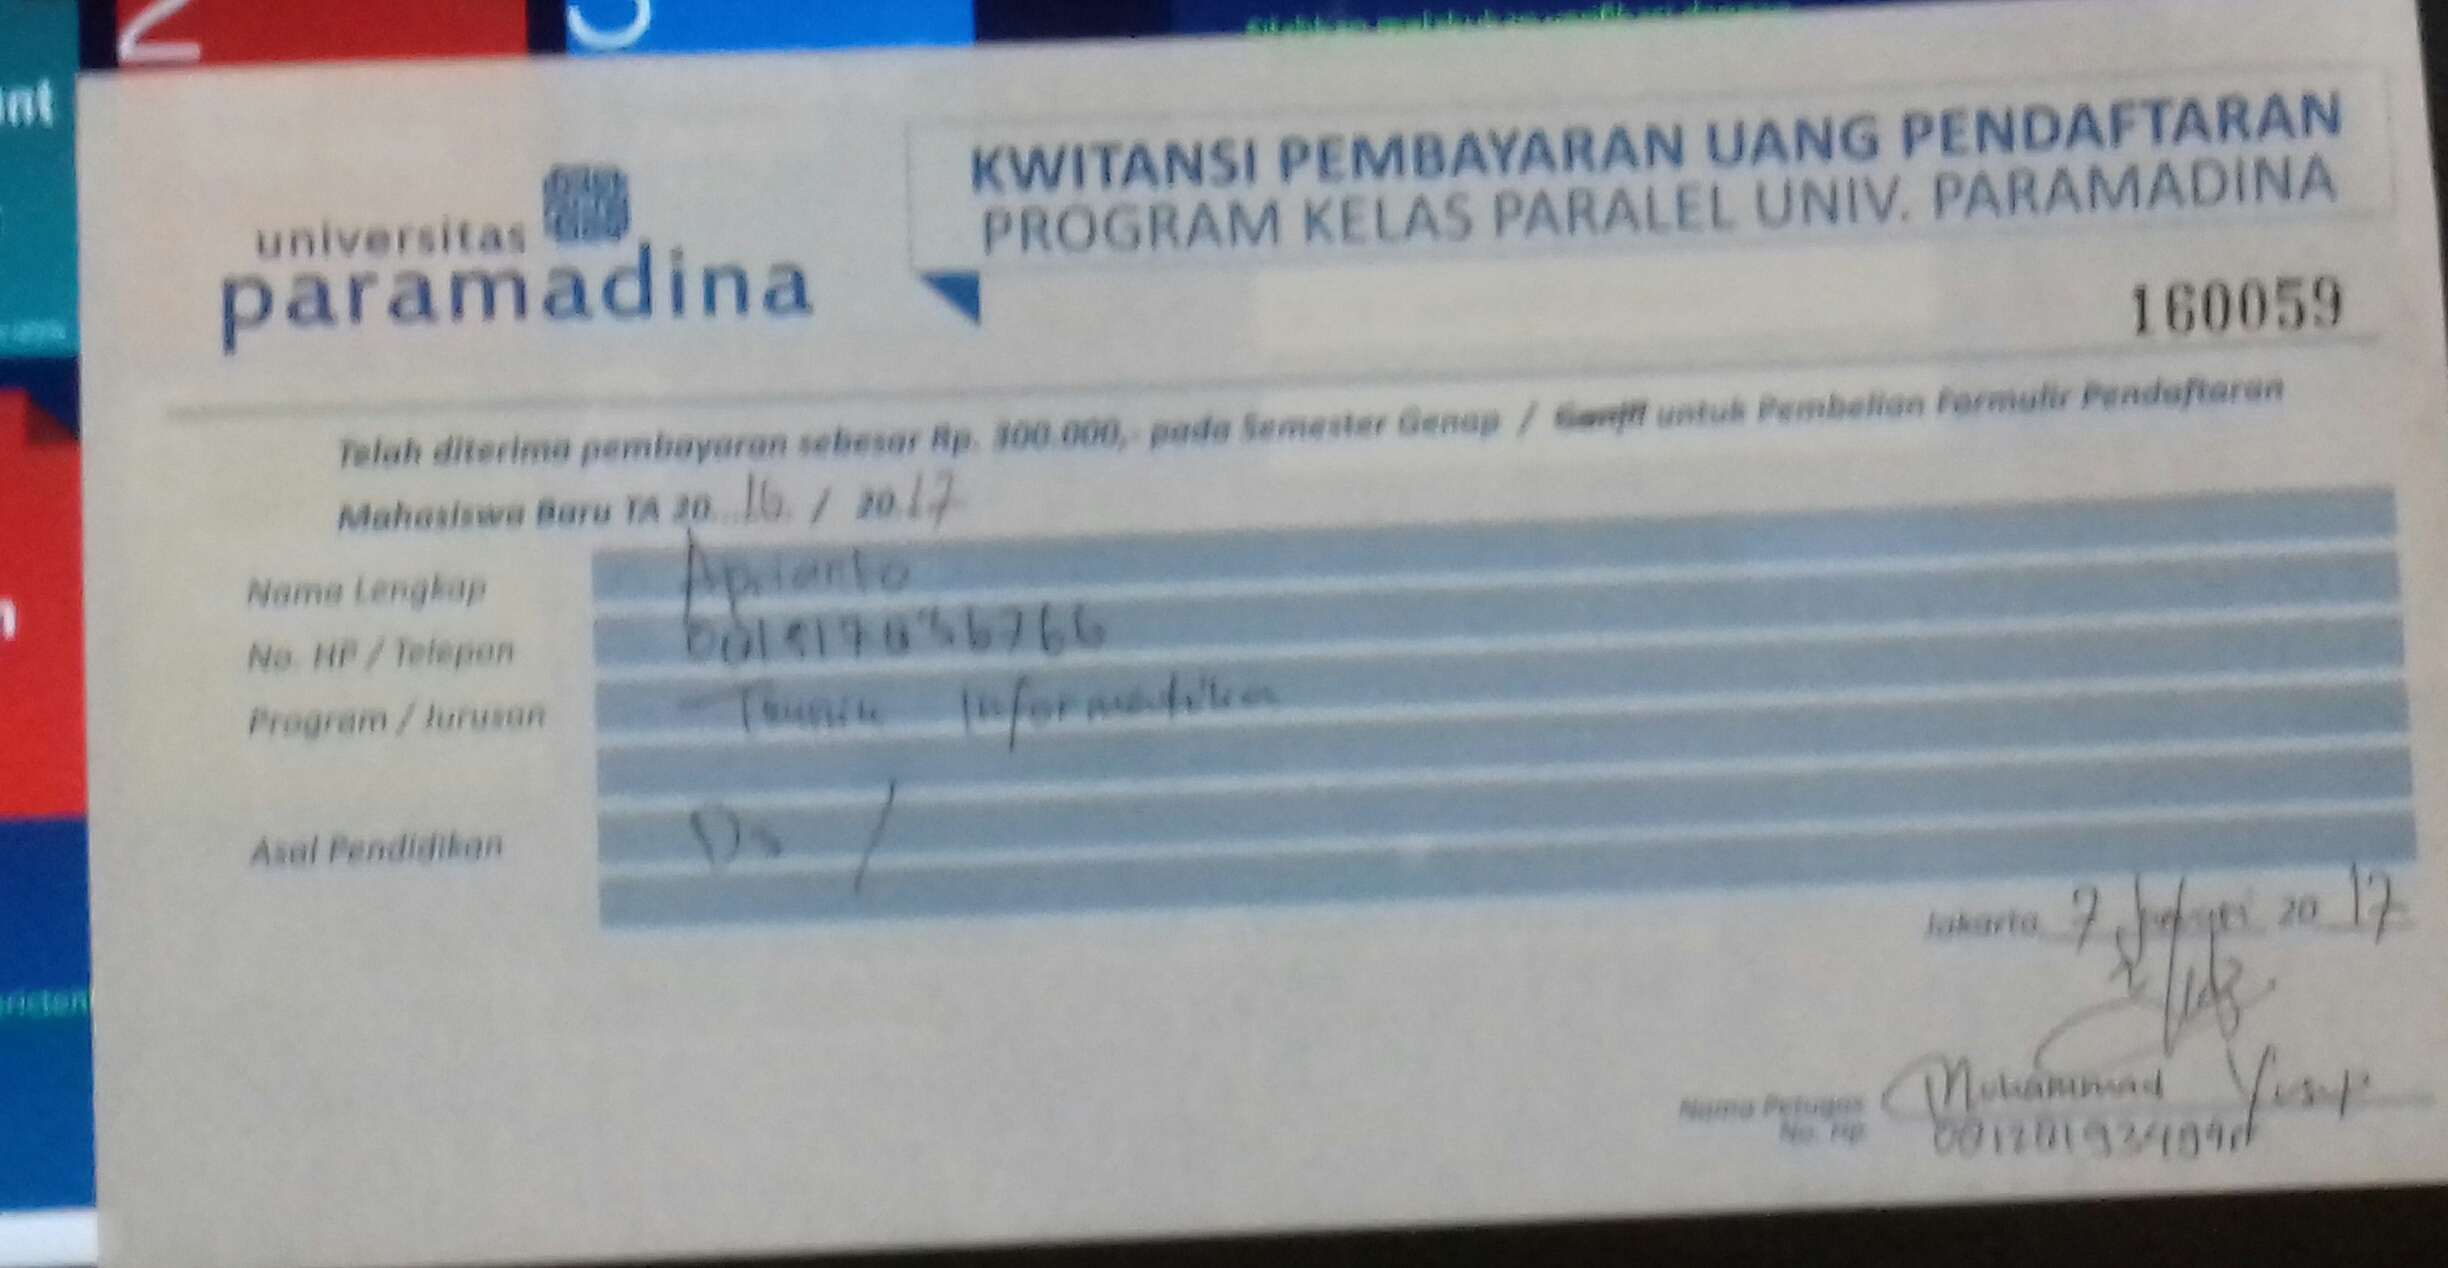 nt
universitas
paramadina
KWITANSI PEMBAYARAN UANG PENDAFTARAN
PROGRAM KELAS PARALEL UNIV. PARAMADINA
160059
Telah diterima pembayaran sebesar Rp. 300.000,- pada Semester Genap / Ganjil untuk Pembelian Formulir Pendaftaran
Mahasiswa Baru TA 20 16 / 20 17
Nama Lengkap Aprianto
No. HP / Telepon
Program / Jurusan Informatika
Asal Pendidikan D3 /
Jakarta 7 20 17
Nama Petugas Muhammad Yusup
No. Hp